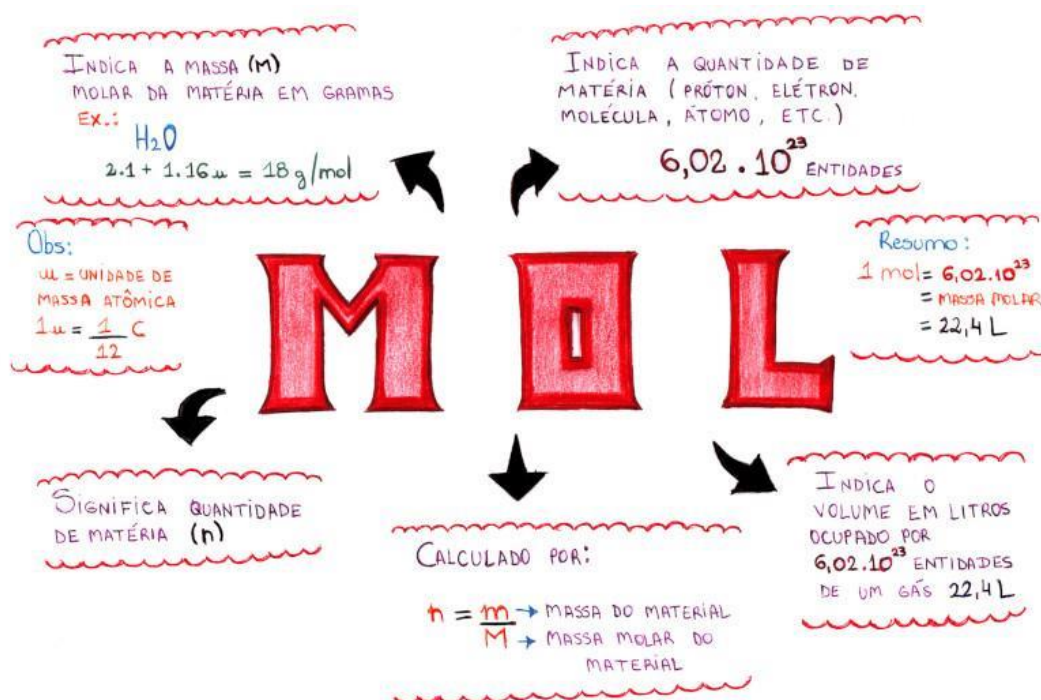 INDICA A MASSA (M)
MOLAR DA MATÉRIA EM GRAMAS
EX.:
H₂O
2.1 + 1.16 u = 18 g/mol
INDICA A QUANTIDADE DE
MATÉRIA (PRÓTON, ELÉTRON,
MOLÉCULA, ÁTOMO, ETC.)
6,02 . 10²³ ENTIDADES
Obs:
u = UNIDADE DE
MASSA ATÔMICA
1u = 1/12 C
MOL
Resumo:
1 mol = 6,02.10²³
= MASSA MOLAR
= 22,4 L
SIGNIFICA QUANTIDADE
DE MATÉRIA (n)
CALCULADO POR:
n = m → MASSA DO MATERIAL
M → MASSA MOLAR DO
MATERIAL
INDICA O
VOLUME EM LITROS
OCUPADO POR
6,02.10²³ ENTIDADES
DE UM GÁS 22,4 L